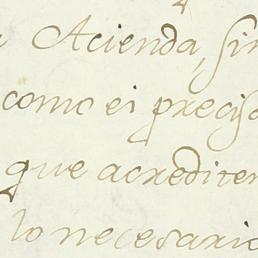 Acienda, sin
como ei precis
que acrediten
lo necesario